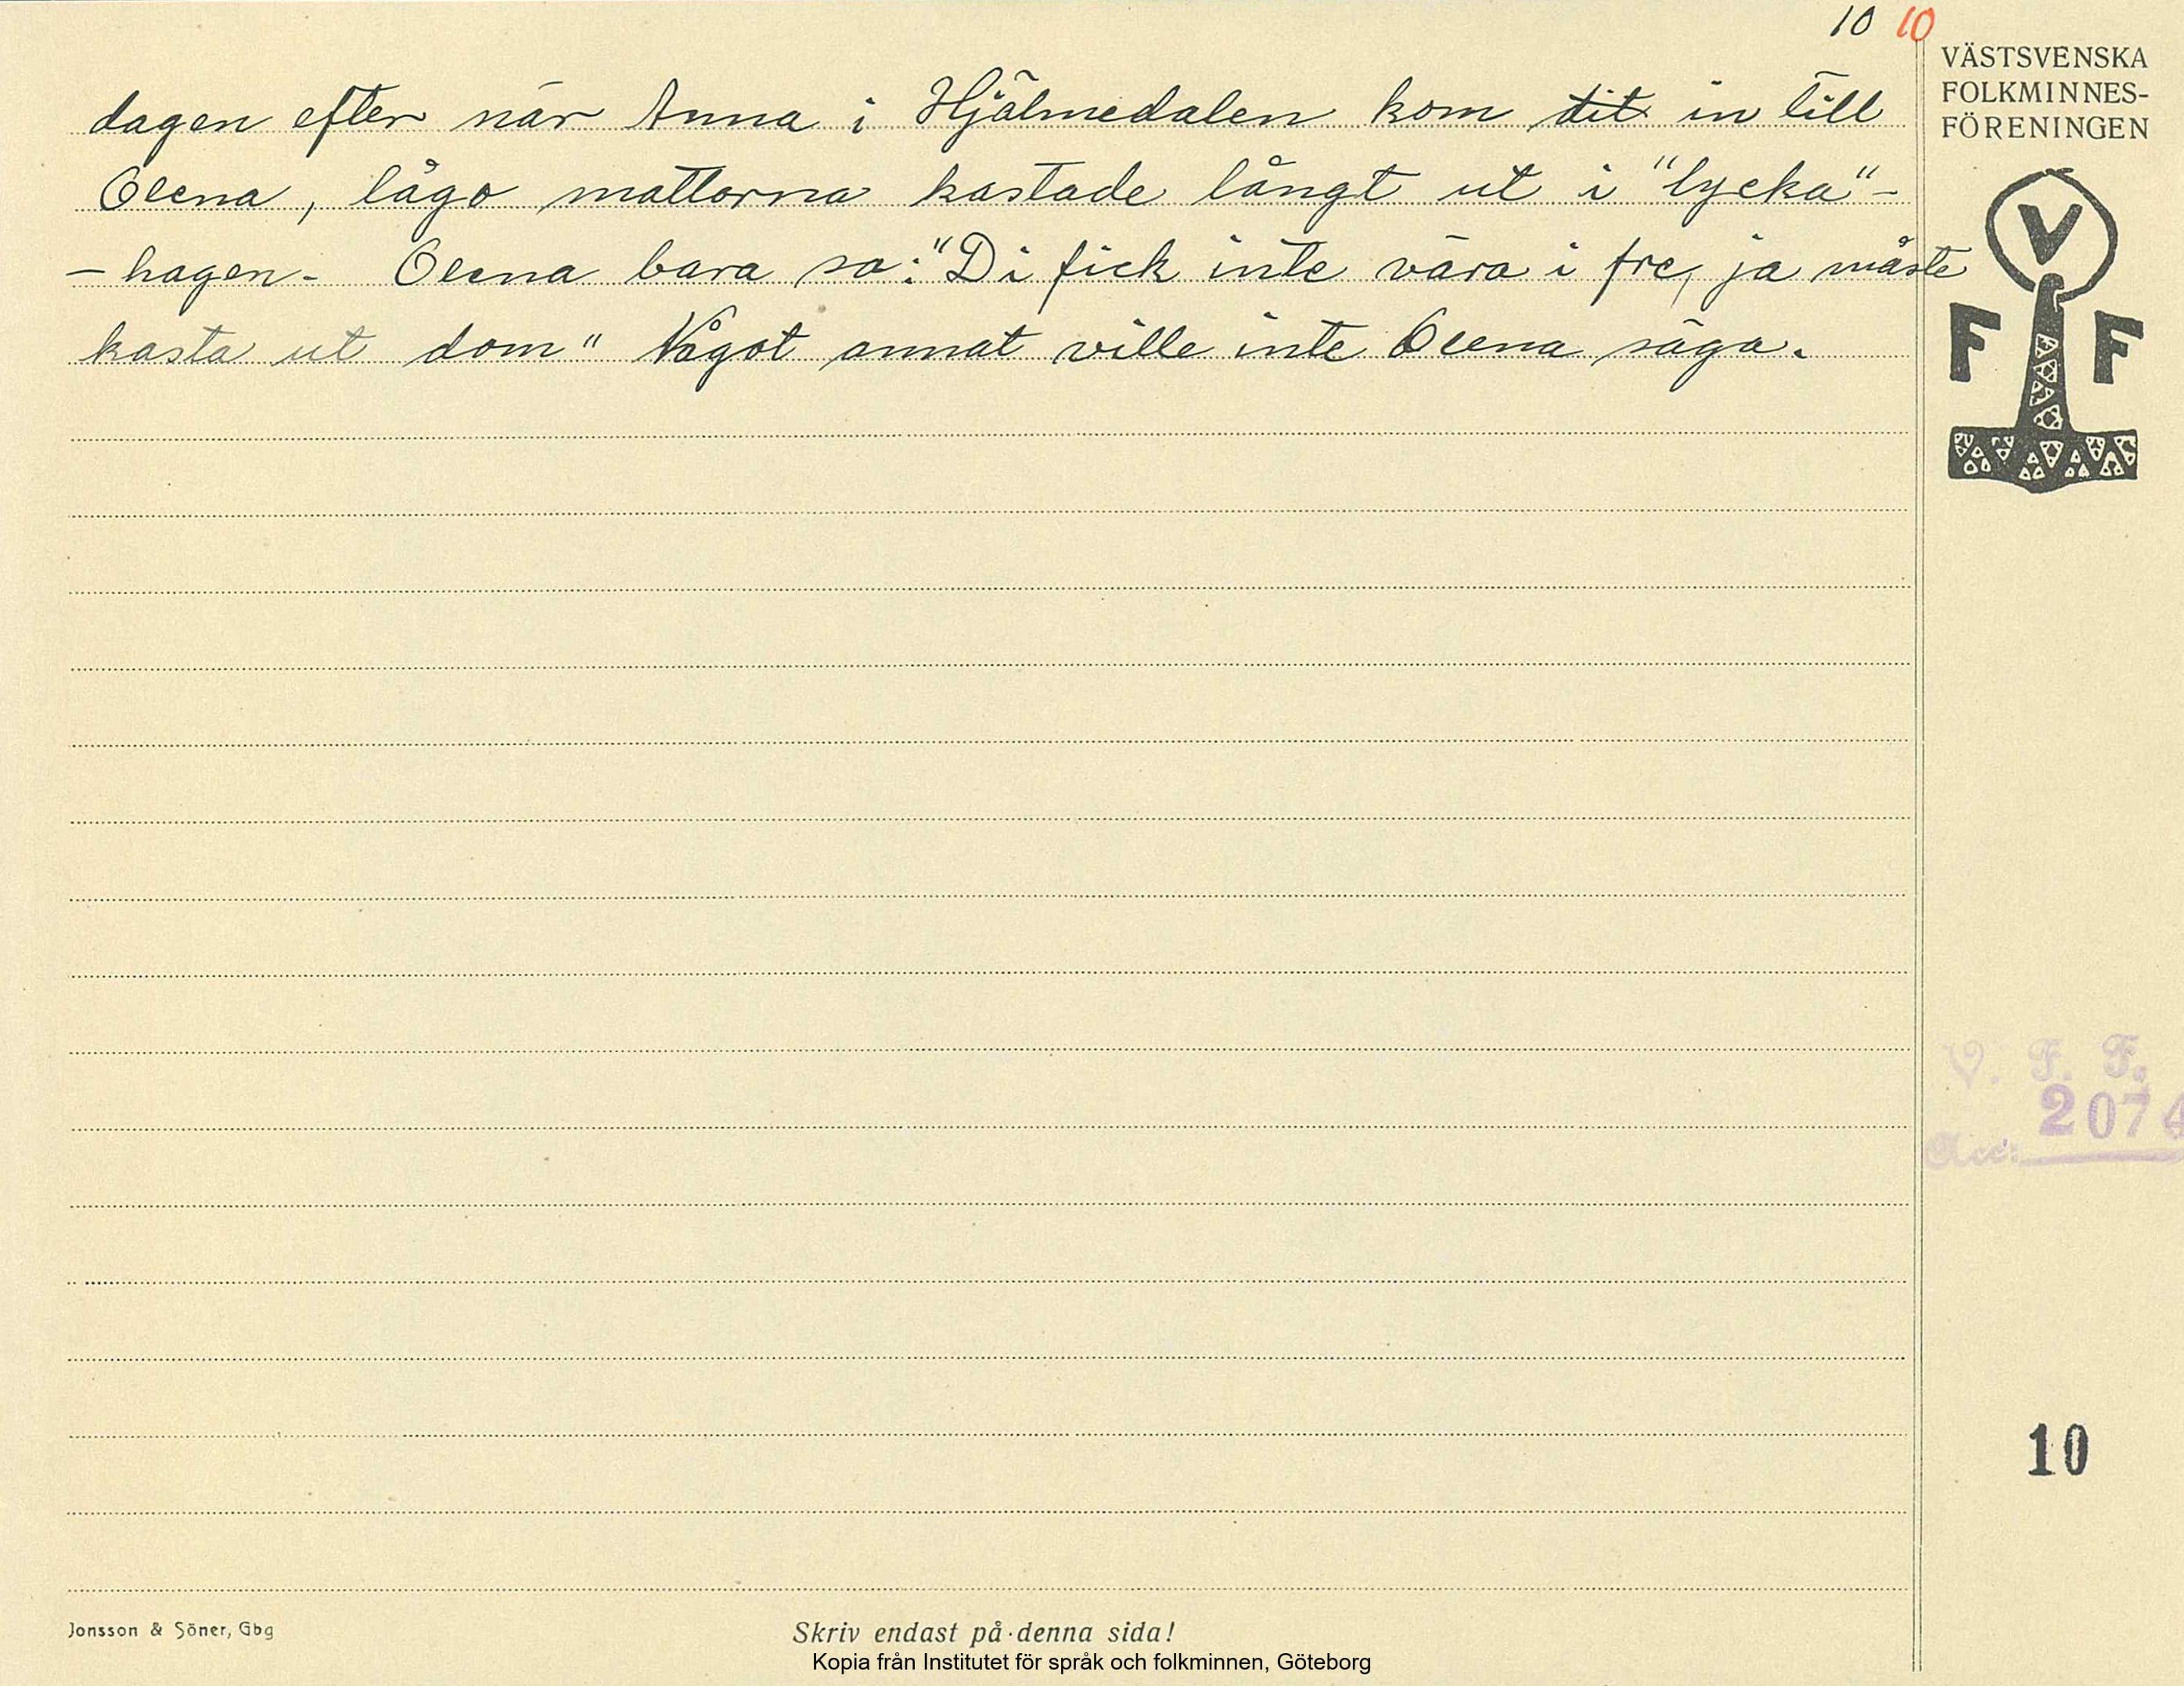 10 10
VÄSTSVENSKA
FOLKMINNES-
FÖRENINGEN
V
F F
dagen efter när Anna i Hjälmedalen kom dit in till
Olena, lågo mattorna kastade långt ut i "lycka"-
- hagen - Olena bara sa: "Di fick inte vara i fre, ja måste
kasta ut dom" Något annat ville inte Olena säga.
V. F. F.
2074
Acc:
10
Jonsson & Söner, Gbg
Skriv endast på denna sida!
Kopia från Institutet för språk och folkminnen, Göteborg